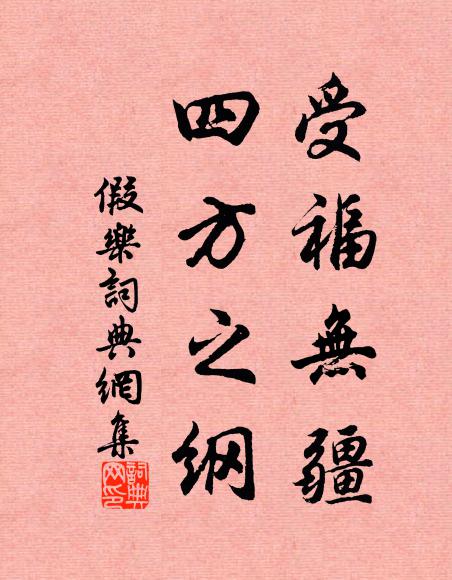 受福無疆
四方之纲
假樂詞典網集
詞典
网印